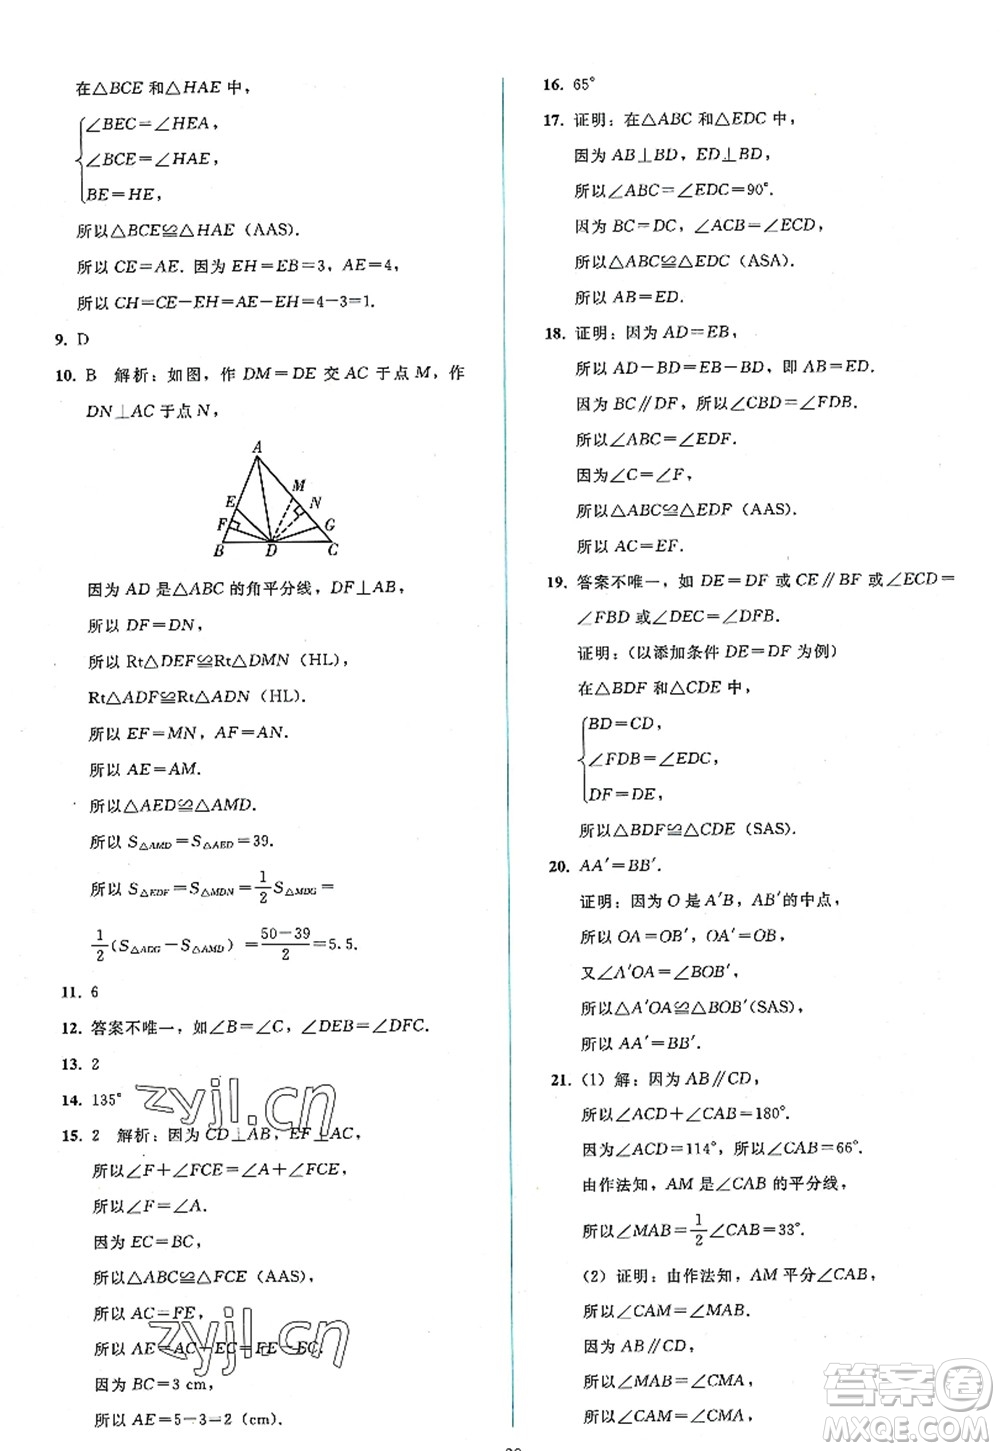 在△BCE 和△HAE 中，
∠BEC=∠HEA，
∠BCE=∠HAE，
BE=HE，
所以△BCE≌△HAE（AAS）.
所以 CE=AE. 因为 EH=EB=3，AE=4，
所以 CH=CE-EH=AE-EH=4-3=1.
9. D
10. B 解析：如图，作 DM=DE 交 AC 于点 M，作
DN⊥AC 于点 N，
A
M
E
N
F
G
B D C
因为 AD 是△ABC 的角平分线，DF⊥AB，
所以 DF=DN，
所以 Rt△DEF≌Rt△DMN（HL），
Rt△ADF≌Rt△ADN（HL）.
所以 EF=MN，AF=AN.
所以 AE=AM.
所以△AED≌△AMD.
所以 S△AMD=S△AED=39.
所以 S△EDF=S△MDN=1/2 S△MDG=
1/2(S△AEG-S△AMD)=(50-39)/2=5.5.
11. 6
12. 答案不唯一，如∠B=∠C，∠DEB=∠DFC.
13. 2
14. 135°
15. 2 解析：因为 CD⊥AB，EF⊥AC，
所以∠F+∠FCE=∠A+∠FCE，
所以∠F=∠A.
因为 EC=BC，
所以△ABC≌△FCE（AAS），
所以 AC=FE，
所以 AE=AC-EC=FE-EC.
因为 BC=3 cm，
所以 AE=5-3=2（cm）.
16. 65°
17. 证明：在△ABC 和△EDC 中，
因为 AB⊥BD，ED⊥BD，
所以∠ABC=∠EDC=90°.
因为 BC=DC，∠ACB=∠ECD，
所以△ABC≌△EDC（ASA）.
所以 AB=ED.
18. 证明：因为 AD=EB，
所以 AD-BD=EB-BD，即 AB=ED.
因为 BC∥DF，所以∠CBD=∠FDB.
所以∠ABC=∠EDF.
因为∠C=∠F，
所以△ABC≌△EDF（AAS）.
所以 AC=EF.
19. 答案不唯一，如 DE=DF 或 CE∥BF 或∠ECD=
∠FBD 或∠DEC=∠DFB.
证明：（以添加条件 DE=DF 为例）
在△BDF 和△CDE 中，
BD=CD，
∠FDB=∠EDC，
DF=DE，
所以△BDF≌△CDE（SAS）.
20. AA′=BB′.
证明：因为 O 是 A′B，AB′的中点，
所以 OA=OB′，OA′=OB，
又∠A′OA=∠BOB′，
所以△A′OA≌△BOB′(SAS)，
所以 AA′=BB′.
21.（1）解：因为 AB∥CD，
所以∠ACD+∠CAB=180°.
因为∠ACD=114°，所以∠CAB=66°.
由作法知，AM 是∠CAB 的平分线，
所以∠MAB=1/2∠CAB=33°.
（2）证明：由作法知，AM 平分∠CAB，
所以∠CAM=∠MAB.
因为 AB∥CD，
所以∠MAB=∠CMA，
所以∠CAM=∠CMA，
zyjl.cn
zyjl.cn
答案圈
MXQE.COM